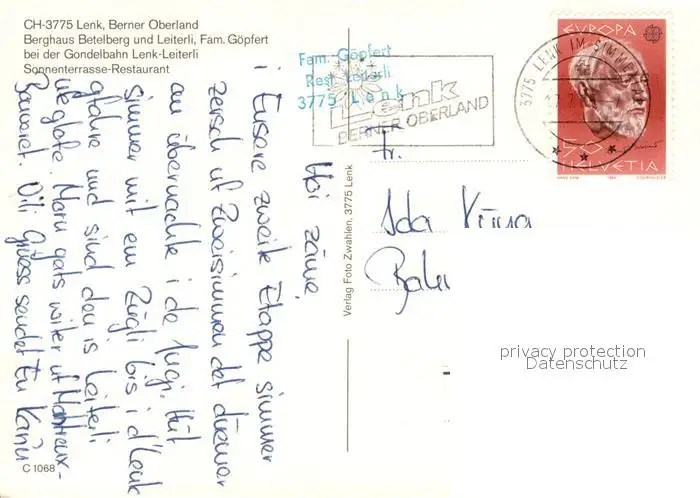 CH-3775 Lenk, Berner Oberland
Berghaus Betelberg und Leiterli, Fam. Göpfert
bei der Gondelbahn Lenk-Leiterli
Sonnenterrasse-Restaurant
Fam. Göpfert
Rest. Leiterli
3775 Lenk
Lenk
BERNER OBERLAND
3775 LENK IM SIMMENT
EUROPA
50
HELVETIA
Fr.
Ida
Verlag Foto Zwahlen, 3775 Lenk
Hoi zäme
i Eusere zweite Etappe simmer
zersch uf Zweisimmen det düemer
au übernachte i de Jugi. Hüt
simmer mit em Zügli bis i d'Lenk
gfahre und sind den is Leiterli
ueglofe. Morn gats wiiter uf Montreux-
sendet Eu
C 1068
privacy protection
Datenschutz